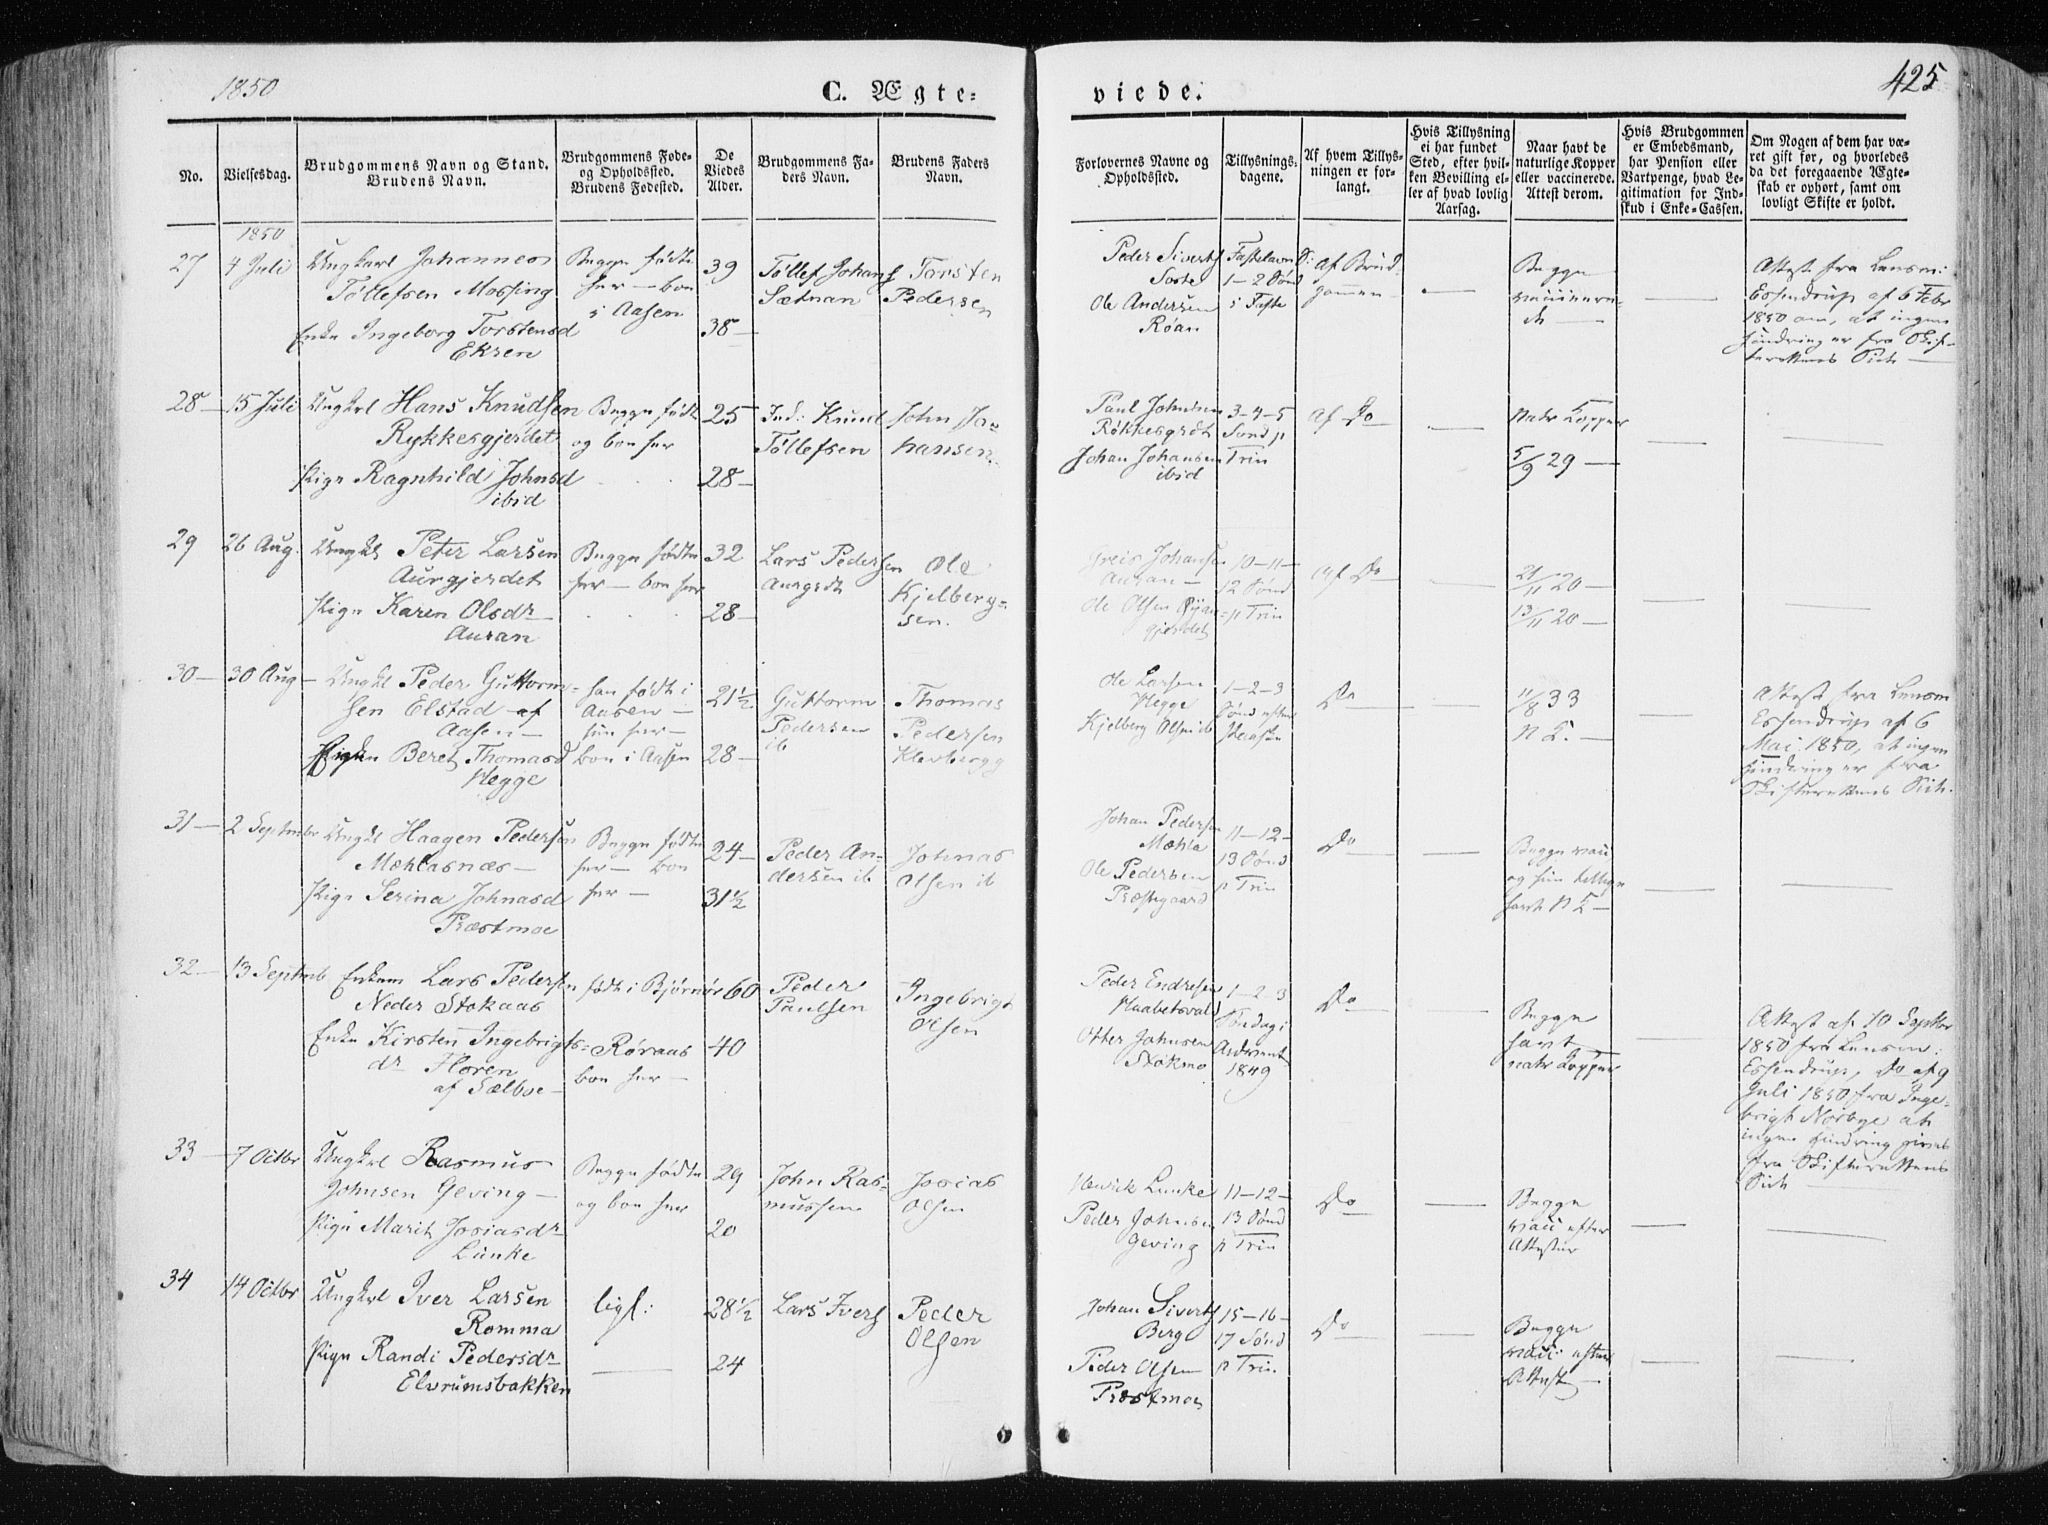 1850
C. Ægte=
viede.
425
No.
Vielsesdag.
Brudgommens Navn og Stand.
Brudens Navn.
Brudgommens Føde=
og Opholdssted.
Brudens Fødested.
De
Viedes
Alder.
Brudgommens Fa=
ders Navn.
Brudens Faders
Navn.
Forlovernes Navne og
Opholdssted.
Tillysnings=
dagene.
Af hvem Tillys=
ningen er for=
langt.
Hvis Tillysning
ei har fundet
Sted, efter hvil=
ken Bevilling el=
ler af hvad lovlig
Aarsag.
Naar havt de
naturlige Kopper
eller vaccinerede.
Attest derom.
Hvis Brudgommen
er Embedsmand,
har Pension eller
Vartpenge, hvad Le=
gitimation for Ind=
skud i Enke=Cassen.
Om Nogen af dem har væ=
ret gift før, og hvorledes
da det foregaaende Ægte=
skab er ophørt, samt om
lovligt Skifte er holdt.
1850
27
4 Juli
Ungkarl Johannes
Tøllefsen Mossing
Enke Ingeborg Torstensd
Ekren
Begge fødte
her – bon
i Aasen
39
38 –
Tøllef Johans
Sætnan
Torsten
Pedersen
Peder Siverts
Soste
Ole Andersen
Røan
Fastelavn S:
1–2 Sønd
i Faste
Af Brud
gommen
Begge
vaccinere
de –
Attest fra Lensm:
Essendrup af 6 Febr
1850 om, at ingen
Hindring er fra Skif
terettens Side –
28 –
15 Juli
Ungkrl Hans Knudsen
Rykkesgjerdet
Pige Ragnhild Johnsd
ibid
Begge fødte
og bon her
25
28 –
Ind: Knud
Tøllefsen
John Jo=
hansen
Paul Johnsen
Røkkesgrdt
Johan Johansen
ibid
3–4–5
Sond p
Trin
Af Do
Natr Kopper
5/9 29 –
29
26 Aug.
Ungkl Peter Larsen
Aurgjerdet
Pige Karen Olsdr
Auran
Begge fødte
her – bon her
32
28 –
Lars Pedersen
Aurgrdt
Ole
Kjelberg=
sen.
Greis Johansen
Auran –
Ole Olsen
gjerdet
10–11–
12 Sønd
p Trin
Af Do
21/11 20 –
13/11 20 –
30 –
30 Aug –
Ungkl Peder Guttorm=
sen Elstad af
Aasen –
Enke Beret Thomasd
Hegge
han født i
Aasen –
hun her –
bon i Aasen
21½
28 –
Guttorm
Pedersen
ib
Thomas
Pedersen
Ole Larsen
Hegge
Kjelberg Olsen ib
1–2–3
Sønd efter
Paaske
Do
11/8 33
N K. –
Attest fra Lensm
Essendrup af 6
Mai 1850, at ingen
Hindring er fra
Skifterettens Side.
31 –
2 Septmbr
Ungkl Haagen Pedersen
Mæhlasnæs –
Pige Serina Johnasd
Præstmoe
Begge fødte
her – bon
her –
24 –
31½
Peder An=
dersen ib
Johnas
Olsen ib
Johan Pedersen
Mæhla
Ole Pedersen
Præstegaard
11–12–
13 Sønd
p Trin
Do
Begge vacc
og hun tillige
havt N K –
32 –
13 Septmb
Enkem Lars Pedersen
Neder Stokaas
Enke Kirsten Ingebrigts=
dr Floren
af Sælboe –
født i Bjørnør
Røraas
bon her –
60
40
Peder
Paulsen
Ingebrigt
Olsen
Peder Endresen
Haabetsvald
Otter Johnsen
Stokmo
1–2–3
Søndag i
Advent
1849
Do
Begge
havt
natr Kopper
Attest af 10 Septbr
1850 fra Lensm:
Essendrup, Do af 9
Juli 1850 fra Inge=
brigt Norbye at
ingen Hindring gives
fra Skifterettens
Side
33 –
7 Octbr
Ungkrl Rasmus
Johnsen Geving –
Pige Marit Josiasdr
Lunke
Begge fødte
og bon her
29
20
John Ras=
mussen
Josias
Olsen
Henrik Lunke
Peder Johnsen
Geving
11–12–
13 Sønd
p Trin
Do
Begge
vacc efter
Attester
34
14 Octbr
Ungkrl Iver Larsen
Romma
Pige Randi Pedersdr
Elvrumsbakken
ligs:
28½
24
Lars Ivers
Peder
Olsen
Johan Siverts
Berg
Peder Olsen
Præstmoe
15–16–
17 Sønd
p Trin
Do
Begge
vacc: efter
Attest –